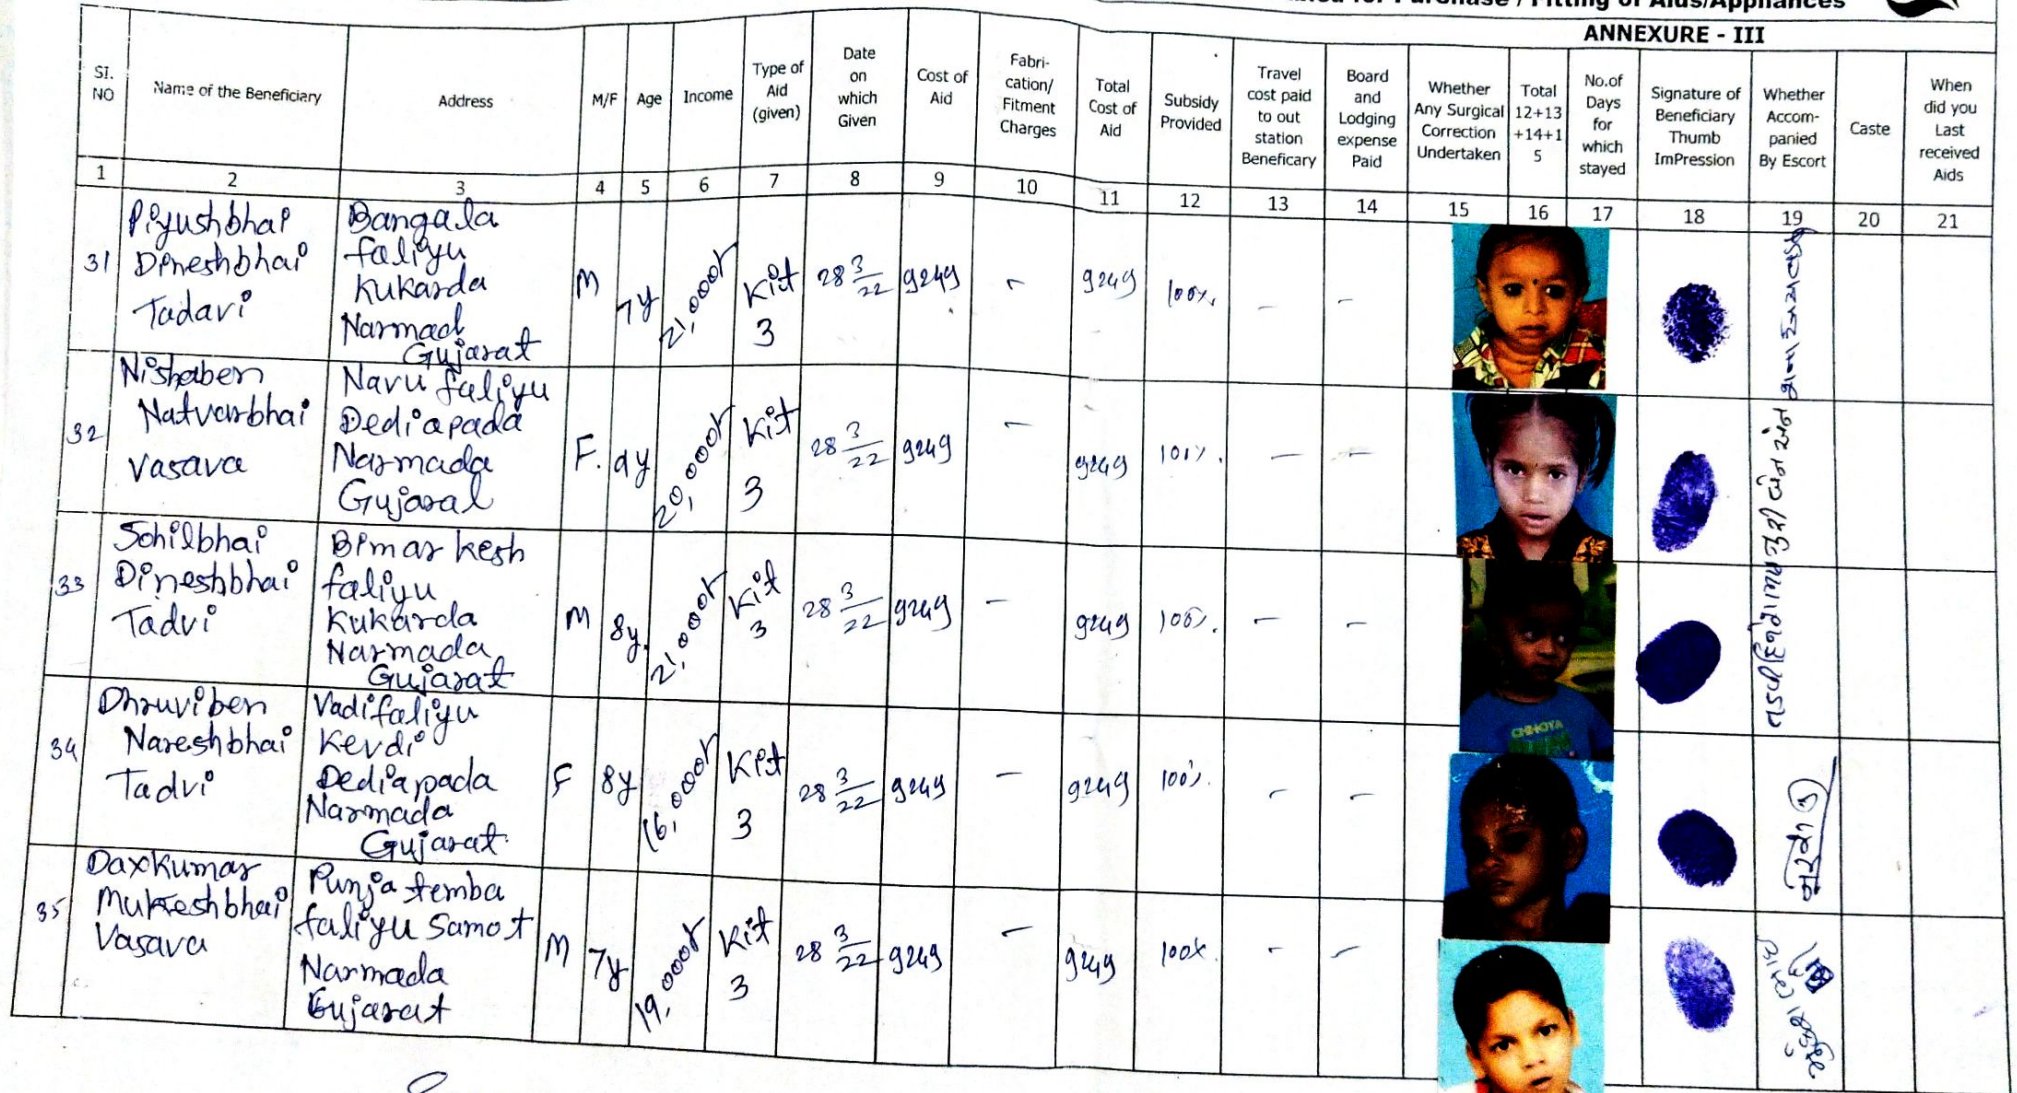 Purchase / Fitting of Aids/Appliances
ANNEXURE - III
SI. NO
Name of the Beneficiary
Address
M/F
Age
Income
Type of Aid (given)
Date on which Given
Cost of Aid
Fabri-cation/ Fitment Charges
Total Cost of Aid
Subsidy Provided
Travel cost paid to out station Beneficary
Board and Lodging expense Paid
Whether Any Surgical Correction Undertaken
Total 12+13 +14+1 5
No.of Days for which stayed
Signature of Beneficiary Thumb ImPression
Whether Accom-panied By Escort
Caste
When did you Last received Aids
1 2 3 4 5 6 7 8 9 10 11 12 13 14 15 16 17 18 19 20 21
31
Piyushbhai
Dineshbhai
Tadavi
Bangala
faliyu
Kukarda
Narmad
Gujarat
M
7y
21,000/-
Kit
3
28 3/22
9249
-
9249
100%.
-
-
32
Nishaben
Natvarbhai
Vasava
Navu faliyu
Dediapada
Narmada
Gujaral
F.
9y
20,000/-
Kit
3
28 3/22
9249
-
9249
-
-
33
Sohilbhai
Dineshbhai
Tadvi
Bimar kesh
faliyu
Kukarda
Narmada
Gujarat
M
8y.
21,000/-
Kit
3
28 3/22
9249
-
9249
100%.
-
-
CHHOYA
34
Dhruviben
Nareshbhai
Tadvi
Vadifaliyu
Kevdi
Dediapada
Narmada
Gujarat.
F
8y
16,000/-
Kit
3
28 3/22
9249
-
9249
100%.
-
-
35
Daxkumar
Mukeshbhai
Vasava
Punja temba
faliyu Samot
Narmada
Gujarat
M
7y
19,000/-
Kit
3
28 3/22
9249
-
9249
100%.
-
-